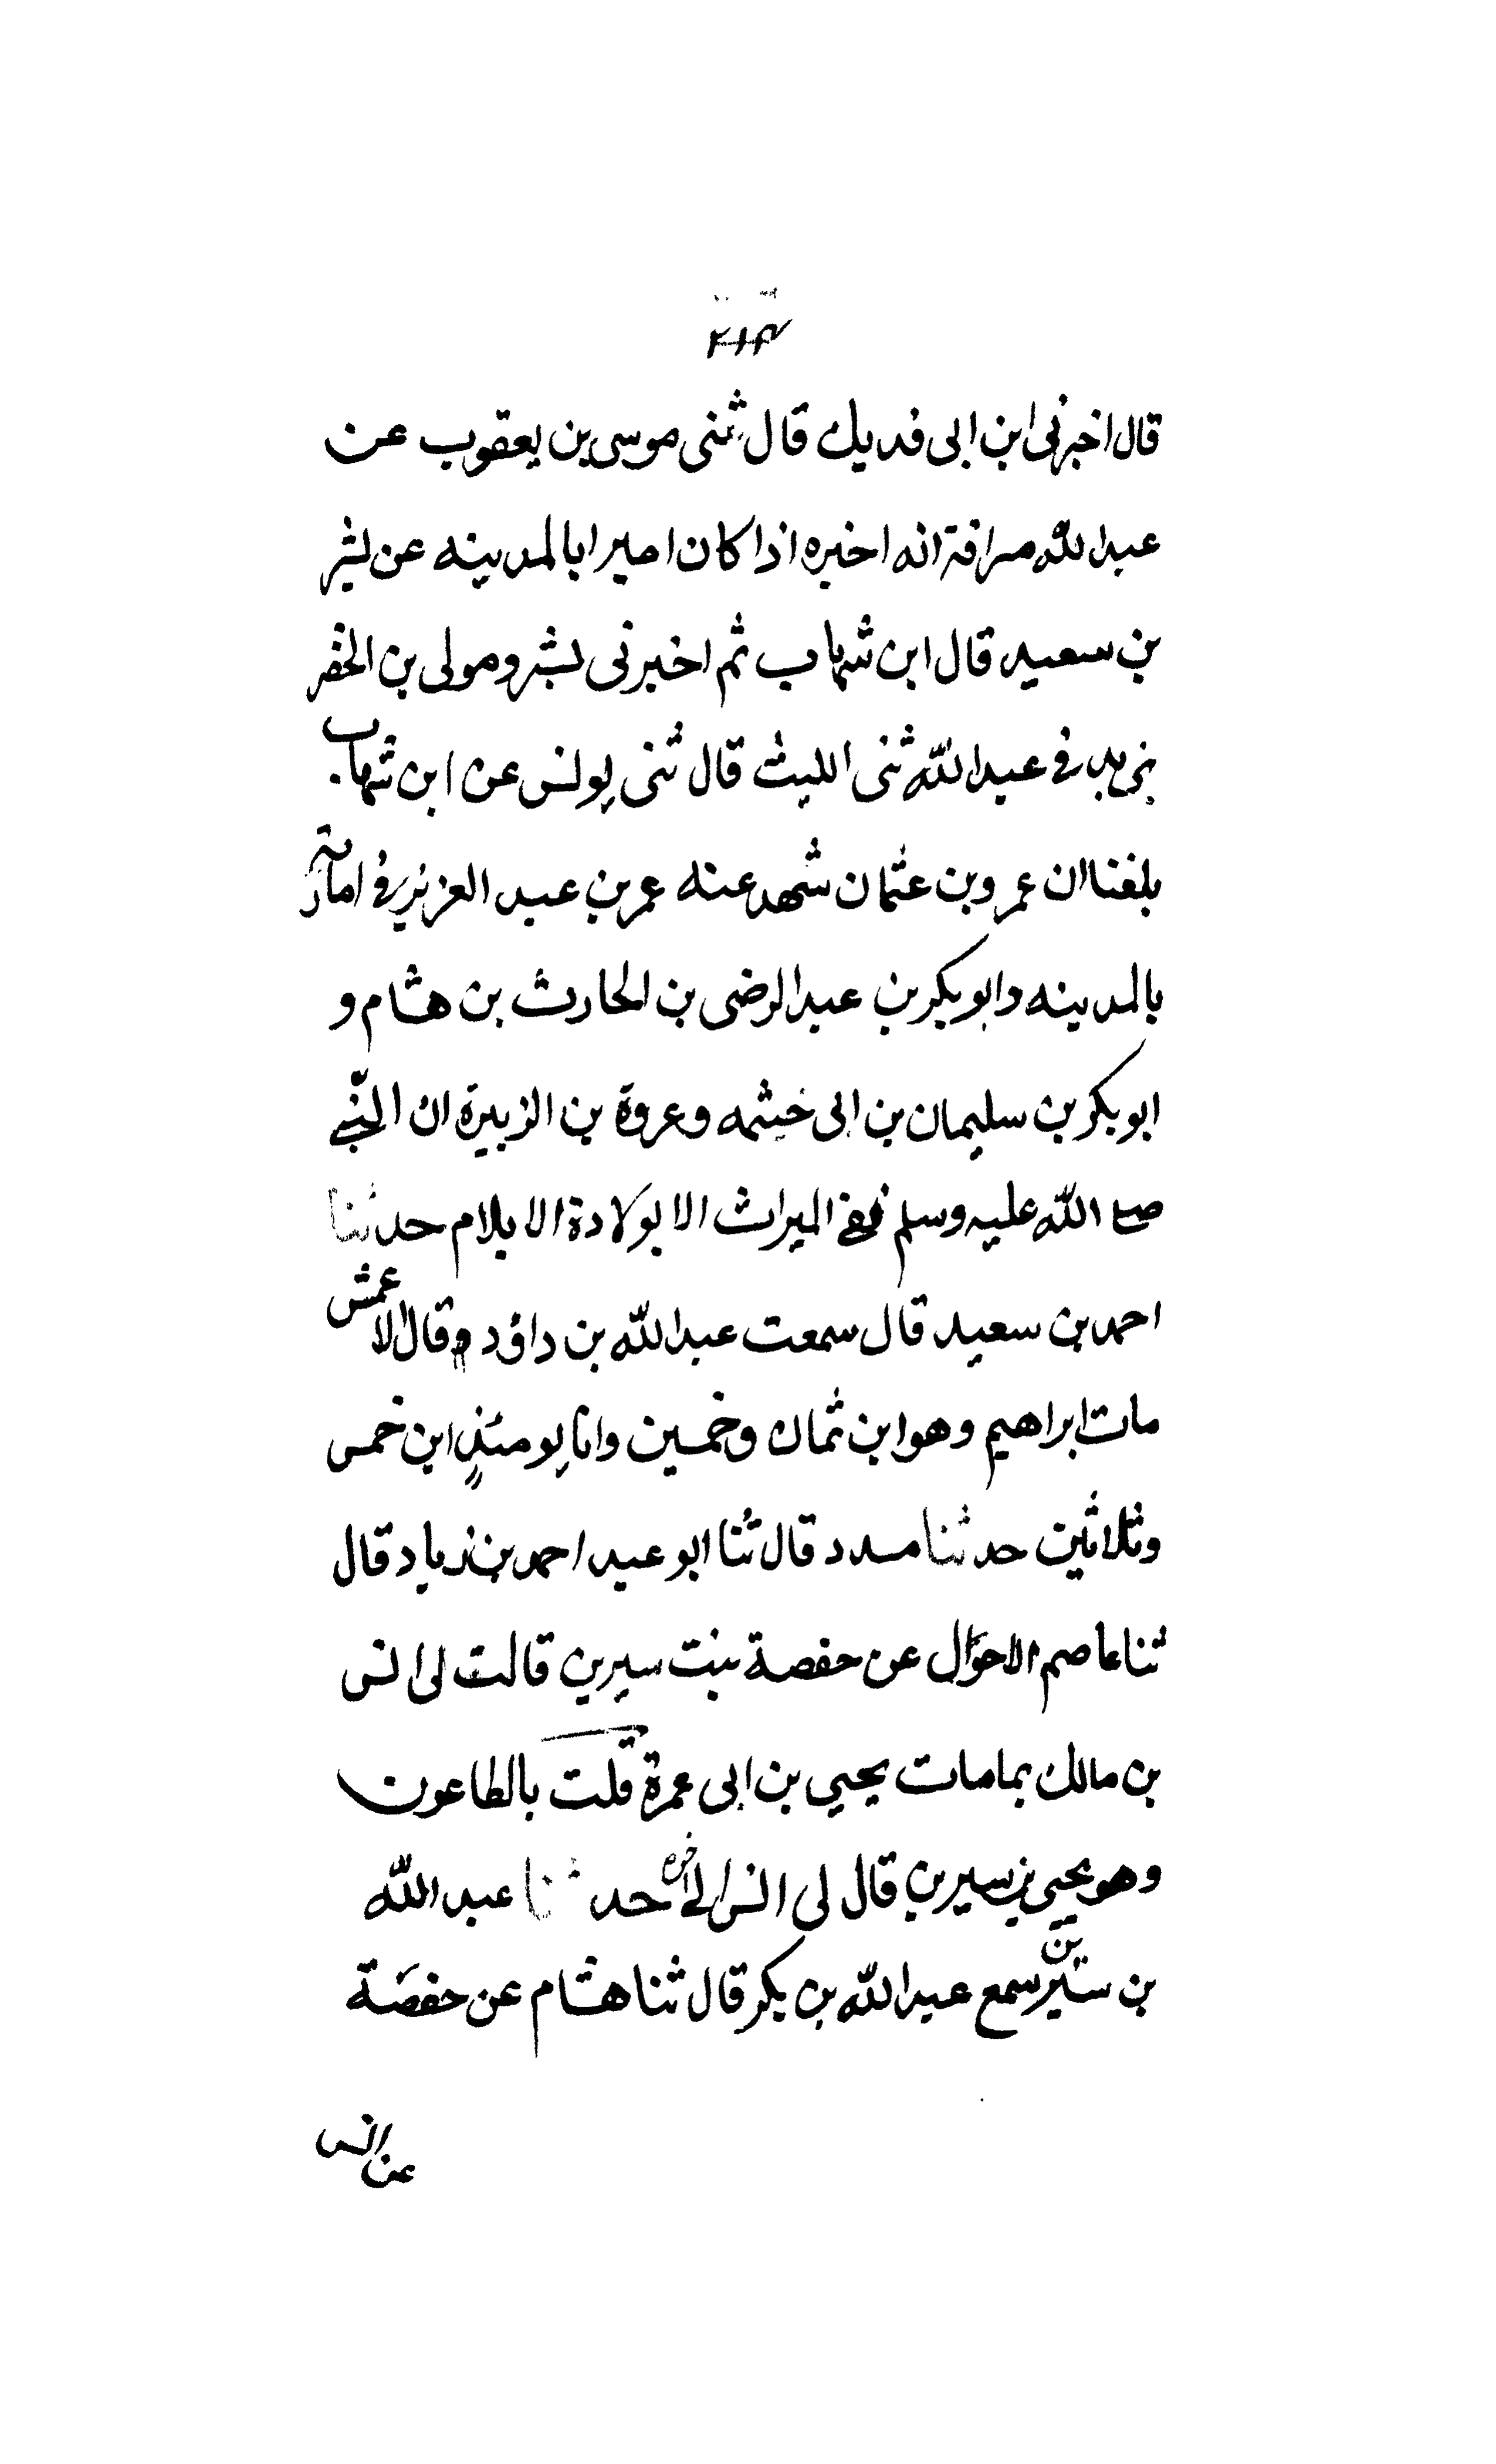 ٢١٣
قال اخبرني ابن ابى فديك قال ثنى موسى بن يعقوب عن
عبد الله سراقة انه اخبره اذا كان اميرا بالمدينه عن بشر
بن سعيد قال ابن شهاب ثم اخبرنى بشر ومولى بن الخفر
عبد الله ثنى الليث قال ثنى يونس عن ابن شهاب
بلغنا ان عمر وبن عثمان شهد عنه عمر بن عبد العزيز في امارته
بالمدينه وابو بكر بن عبد الرضى بن الحارث بن هشام و
ابو بكر بن سليمان بن ابى خيثمه وعروة بن الزبيرة ان النبے
صلے الله عليه وسلم الميراث الا بولادة الا بلام حدثنا
احمد بن سعيد قال سمعت عبد الله بن داؤد وقال الاعمش
مات ابراهيم وهو ابن ثمان وخمسين وانا يومئذٍ ابن خمس
وثلاثين حدثنا مسدد قال ثنا ابو عبد احمد بن زياد قال
ثنا عاصم الاحوال عن حفصة بنت سيرين قالت لى انس
بن مالك بما مات يحيى بن ابى عمرة قلت بالطاعون
وهو يحيى بن سيرين قال لى انس الى اخره حدثنا عبد الله
بن سمع عبد الله بن بكر قال ثنا هشام عن حفصة
عن انس